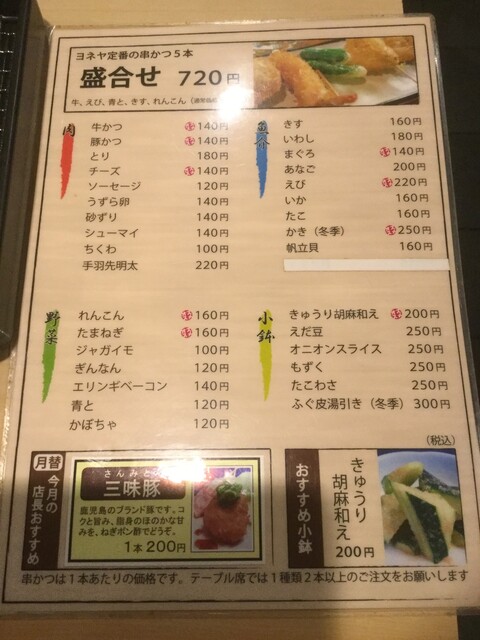 ヨネヤ定番の串かつ５本
盛合せ 720円
牛、えび、青と、きす、れんこん
肉
牛かつ 140円
豚かつ 140円
とり 180円
チーズ 140円
ソーセージ 120円
うずら卵 140円
砂ずり 140円
シューマイ 140円
ちくわ 100円
手羽先明太 220円
魚介
きす 160円
いわし 180円
まぐろ 140円
あなご 200円
えび 220円
いか 160円
たこ 160円
かき（冬季） 250円
帆立貝 160円
野菜
れんこん 160円
たまねぎ 160円
ジャガイモ 100円
ぎんなん 120円
エリンギベーコン 140円
青と 120円
かぼちゃ 120円
小鉢
きゅうり胡麻和え 200円
えだ豆 250円
オニオンスライス 250円
もずく 250円
たこわさ 250円
ふぐ皮湯引き（冬季） 300円
（税込）
月替
今月の
店長おすすめ
さんみとん
三味豚
鹿児島のブランド豚です。コ
クと旨み、脂身のほのかな甘
みを、ねぎポン酢でどうぞ。
1本200円
おすすめ小鉢
きゅうり
胡麻和え
200円
串かつは１本あたりの価格です。テーブル席では１種類２本以上のご注文をお願いします